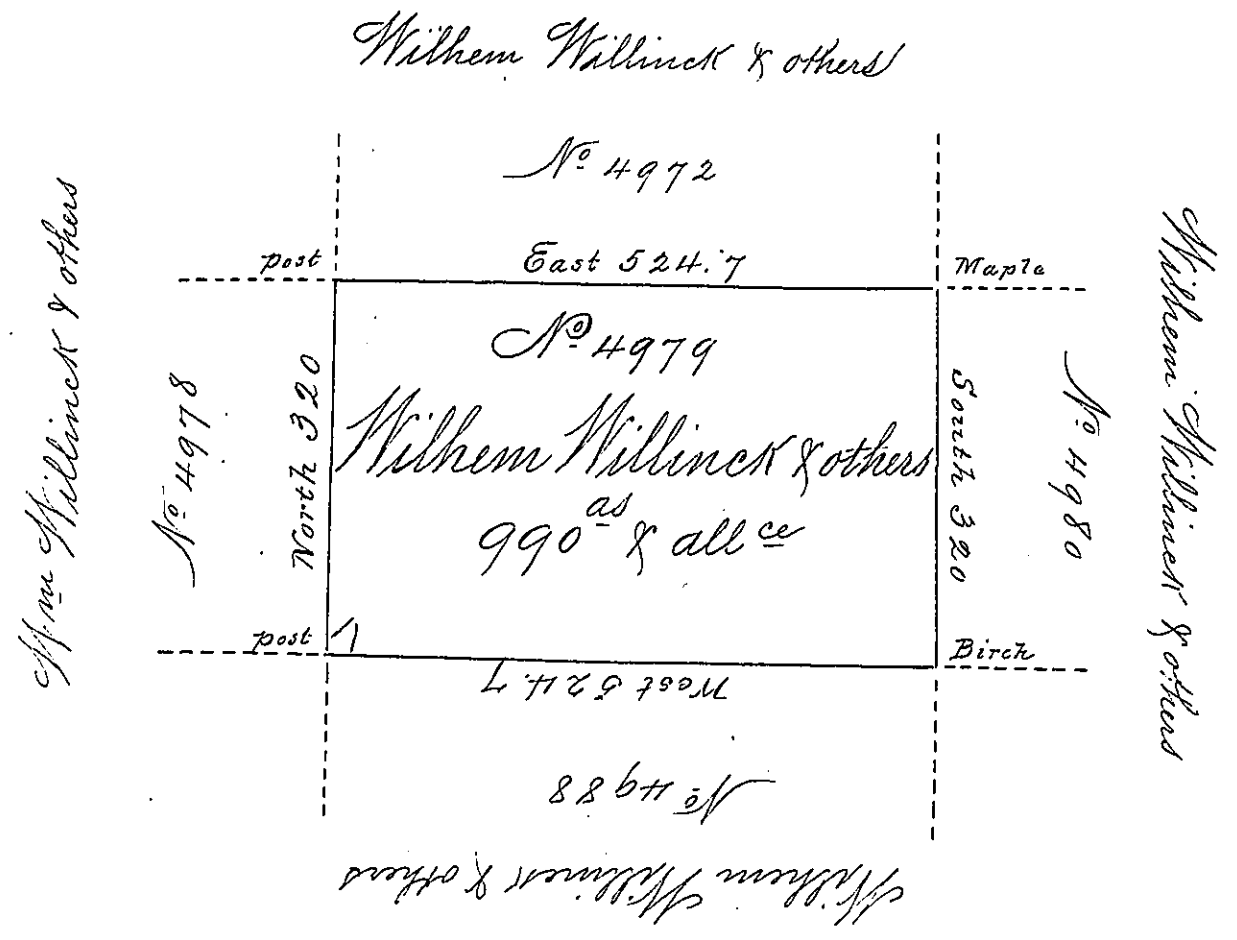 Wilhem Willinck & others
No 4972
post
East 524.7
Maple
Wm Willinck & others
No 4978
North 320
No 4979
Wilhem Willinck & others
990 as & all ce
South 320
No 4980
Wilhem Willinck & others
post
Birch
West 524.7
No 4988
Wilhem Willinck & others